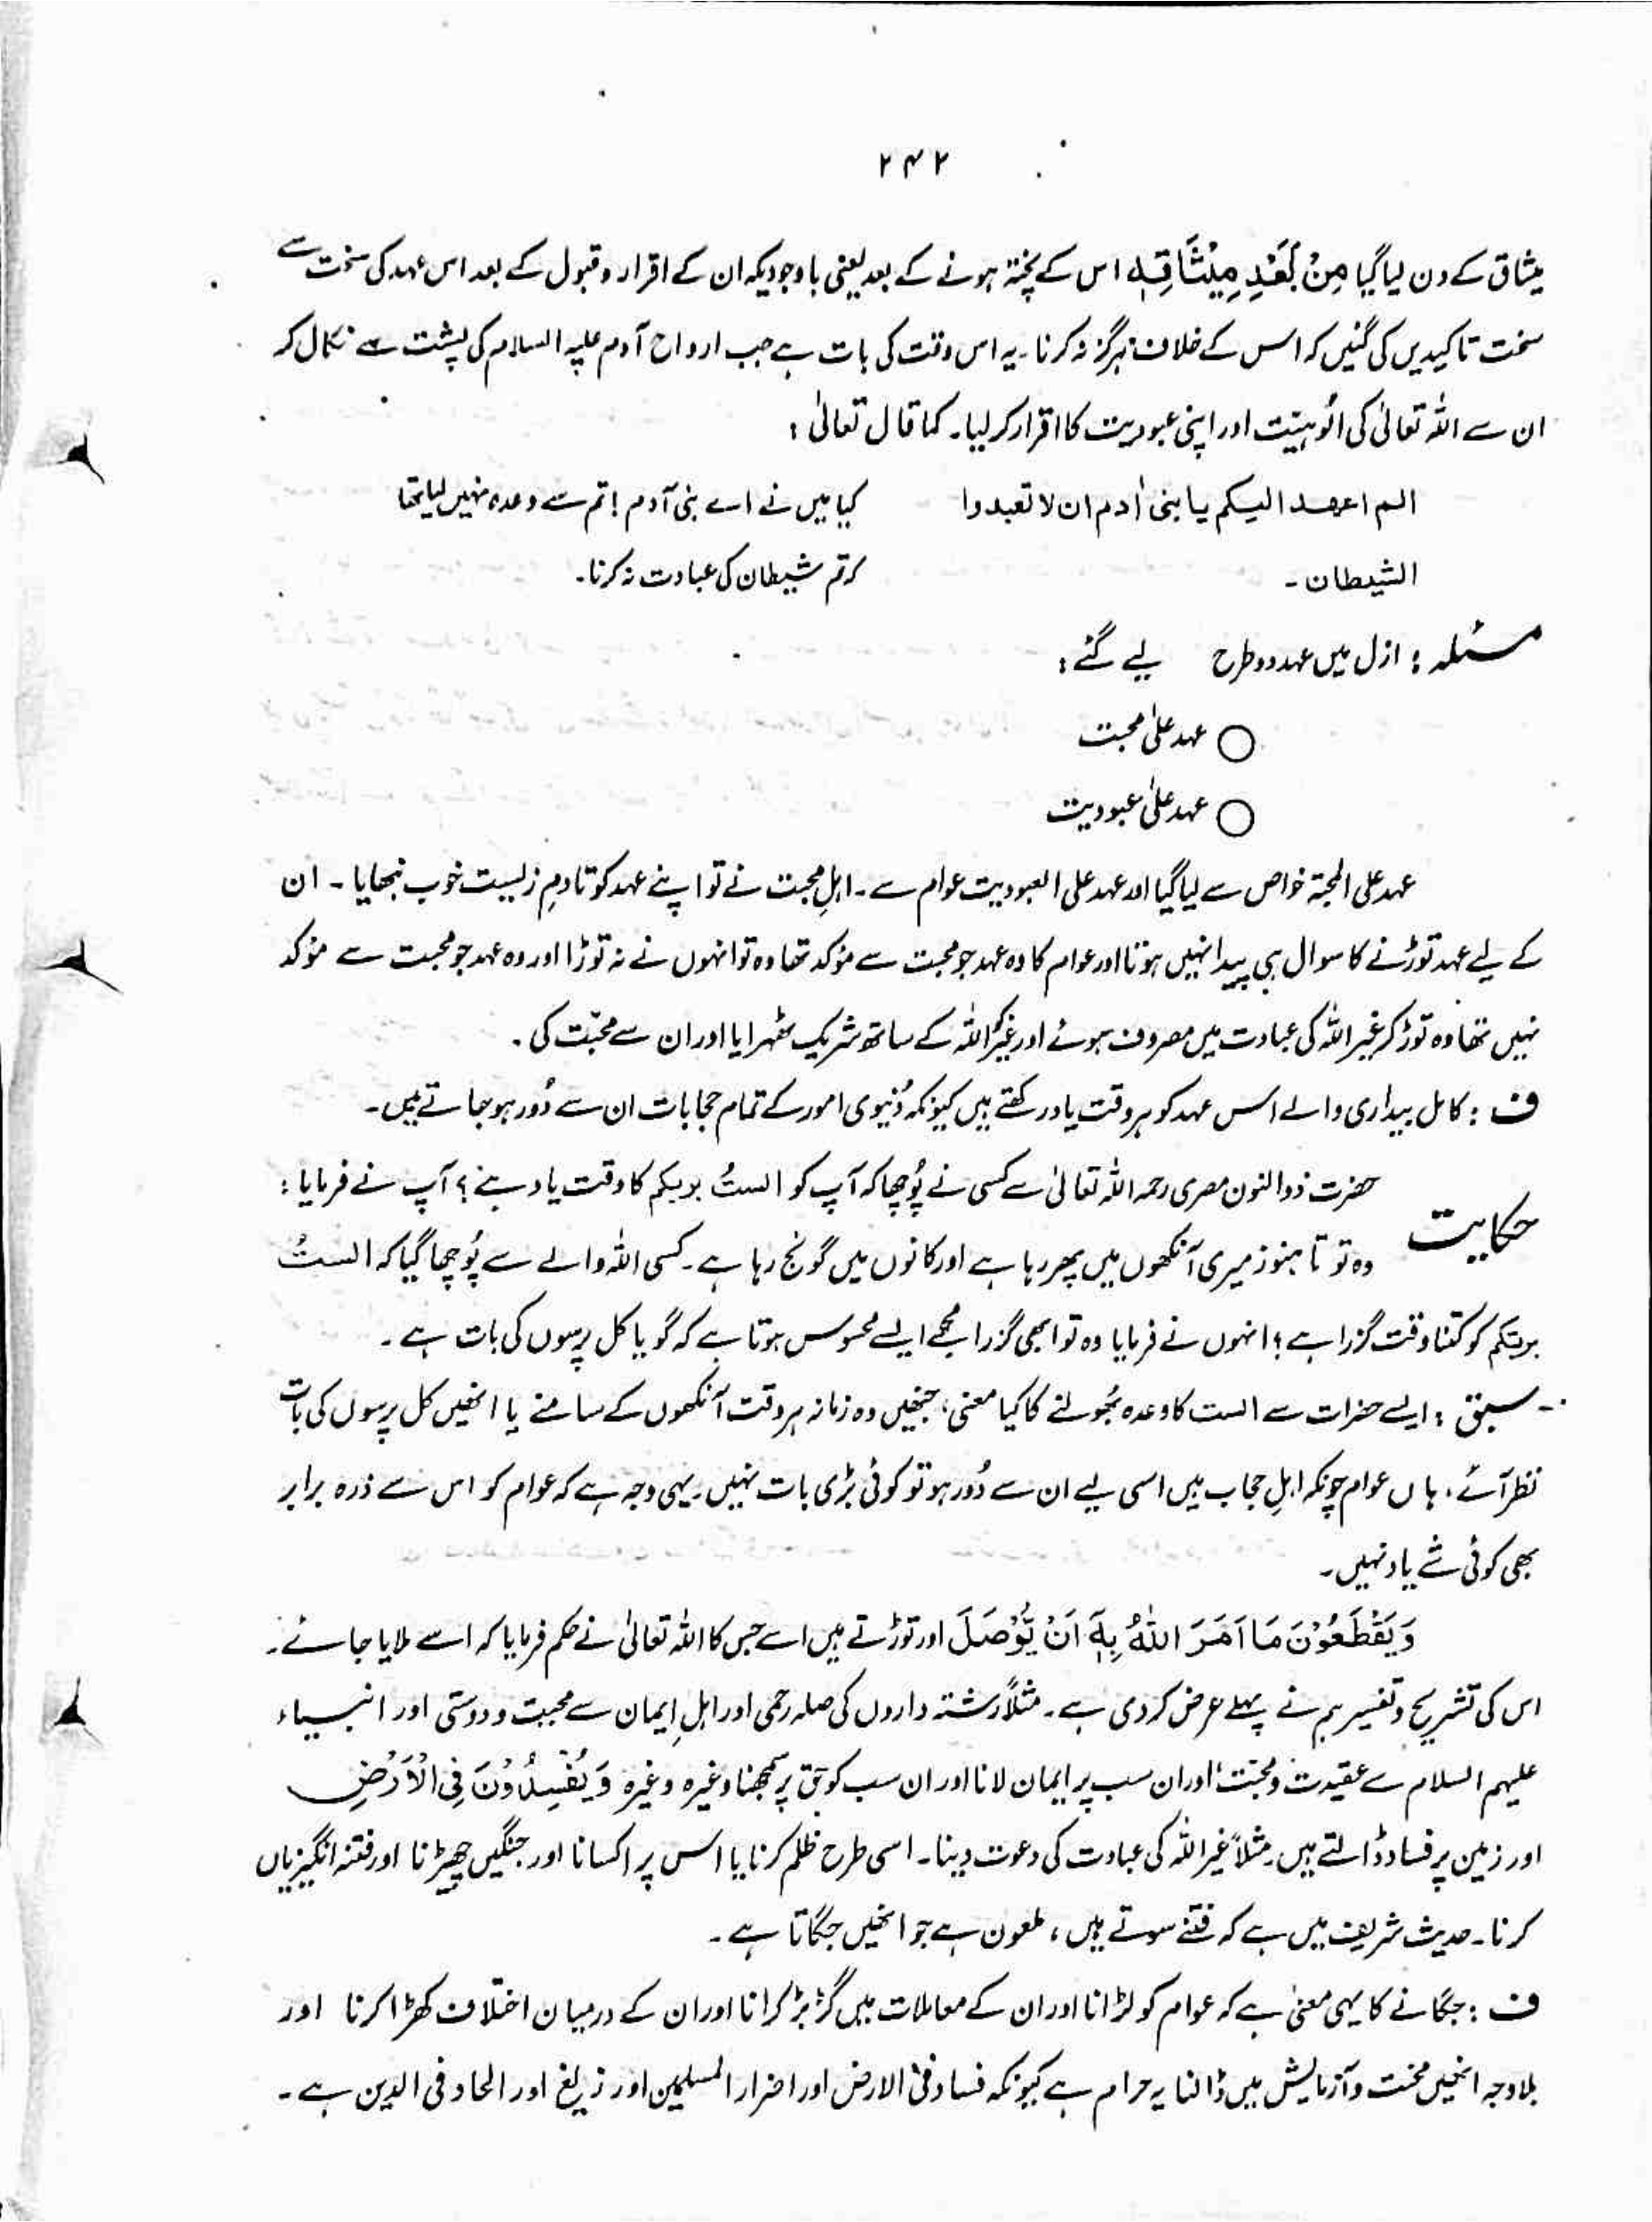 ۲۴۲
میثاق کے دن لیا گیا مِنْۢ بَعْدِ مِیْثَاقِہٖ اس کے پختہ ہونے کے بعد یعنی باوجودیکہ ان کے اقرار و قبول کے بعد اس عہد کی سخت سے
سخت تاکیدیں کی گئیں کہ اس کے خلاف ہرگز نہ کرنا۔ یہ اس وقت کی بات ہے جب ارواح آدم علیہ السلام کی پشت سے نکال کر
ان سے اللہ تعالیٰ کی الُوہیّت اور اپنی عبودیت کا اقرار کرلیا۔ کما قال تعالیٰ :
الم اعھد الیکم یا بنی اٰدم ان لا تعبدوا کیا میں نے اے بنی آدم! تم سے وعدہ نہیں لیا تھا
الشیطان ۔ کہ تم شیطان کی عبادت نہ کرنا۔
مسئلہ : ازل میں عہد دو طرح لیے گئے :
○ عہد علیٰ محبت
○ عہد علیٰ عبودیت
عہد علی المحبۃ خواص سے لیا گیا اور عہد علی العبودیت عوام سے۔ اہلِ محبت نے تو اپنے عہد کو تادمِ زیست خوب نبھایا ۔ ان
کے لیے عہد توڑنے کا سوال ہی پیدا نہیں ہوتا اور عوام کا وہ عہد جو محبت سے مؤکد تھا وہ تو انہوں نے نہ توڑا اور وہ عہد جو محبت سے مؤکد
نہیں تھا وہ توڑ کر غیر اللہ کی عبادت میں مصروف ہوئے اور غیرُ اللہ کے ساتھ شریک ٹھہرایا اور ان سے محبّت کی ۔
ف : کامل بیداری والے اس عہد کو ہر وقت یاد رکھتے ہیں کیونکہ دُنیوی امور کے تمام حجابات ان سے دُور ہو جاتے ہیں۔
حضرت ذوالنون مصری رحمہ اللہ تعالیٰ سے کسی نے پُوچھا کہ آپ کو الستُ بربکم کا وقت یاد ہے ؟ آپ نے فرمایا :
حکایت وہ تو تا ہنوز میری آنکھوں میں پھر رہا ہے اور کانوں میں گونج رہا ہے۔ کسی اللہ والے سے پُوچھا گیا کہ الستُ
بربکم کو کتنا وقت گزرا ہے ؟ انہوں نے فرمایا وہ تو ابھی گزرا مجھے ایسے محسوس ہوتا ہے کہ گویا کل پرسوں کی بات ہے ۔
سبق : ایسے حضرات سے الست کا وعدہ بُھولنے کا کیا معنی، جنھیں وہ زمانہ ہر وقت آنکھوں کے سامنے یا انھیں کل پرسوں کی بات
نظر آئے، ہاں عوام چونکہ اہلِ حجاب ہیں اسی لیے ان سے دُور ہو تو کوئی بڑی بات نہیں۔ یہی وجہ ہے کہ عوام کو اس سے ذرہ برابر
بھی کوئی شے یاد نہیں۔
وَیَقْطَعُوْنَ مَا اَمَرَ اللہُ بِہٖٓ اَنْ یُّوْصَلَ اور توڑتے ہیں اسے جس کا اللہ تعالیٰ نے حکم فرمایا کہ اسے ملایا جائے۔
اس کی تشریح و تفسیر ہم نے پہلے عرض کردی ہے۔ مثلاً رشتہ داروں کی صلہ رحمی اور اہلِ ایمان سے محبت و دوستی اور انبیاء
علیہم السلام سے عقیدت و محبّت اور ان سب پر ایمان لانا اور ان سب کو حق پر سمجھنا وغیرہ وغیرہ وَیُفْسِدُوْنَ فِی الْاَرْضِ
اور زمین پر فساد ڈالتے ہیں۔ مثلاً غیر اللہ کی عبادت کی دعوت دینا۔ اسی طرح ظلم کرنا یا اس پر اکسانا اور جنگیں چھیڑنا اور فتنہ انگیزیاں
کرنا۔ حدیث شریف میں ہے کہ فتنے سوتے ہیں، ملعون ہے جو انھیں جگاتا ہے ۔
ف : جگانے کا یہی معنیٰ ہے کہ عوام کو لڑانا اور ان کے معاملات میں گڑبڑ کرانا اور ان کے درمیان اختلاف کھڑا کرنا اور
بلاوجہ انھیں محنت و آزمایش میں ڈالنا یہ حرام ہے کیونکہ فساد فی الارض اور اضرار المسلمین اور زیغ اور الحاد فی الدین ہے ۔